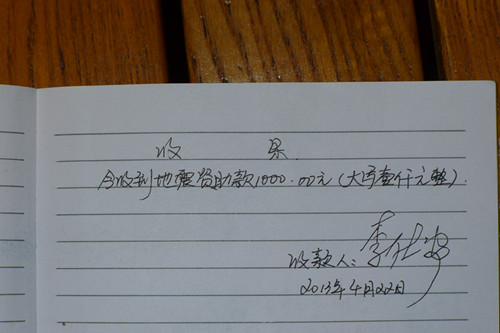 收 具
今收到地震资助款1000.00元(大写壹仟元整).
收款人:李仕安
2013年4月22日